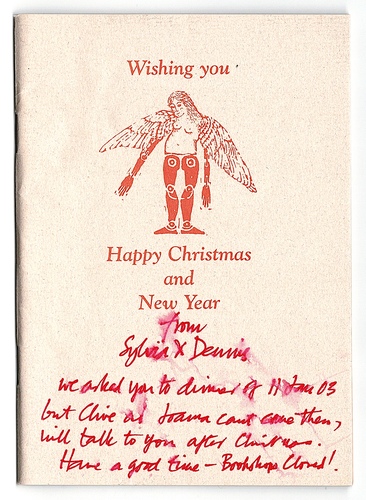 Wishing you
Happy Christmas
and
New Year
from
Sylvia X Dennis
we asked you to dinner of 11 Jan 03
but Clive at Joanna cant come then,
will talk to you after Christmas.
Have a good time – Bookshops Closed!.